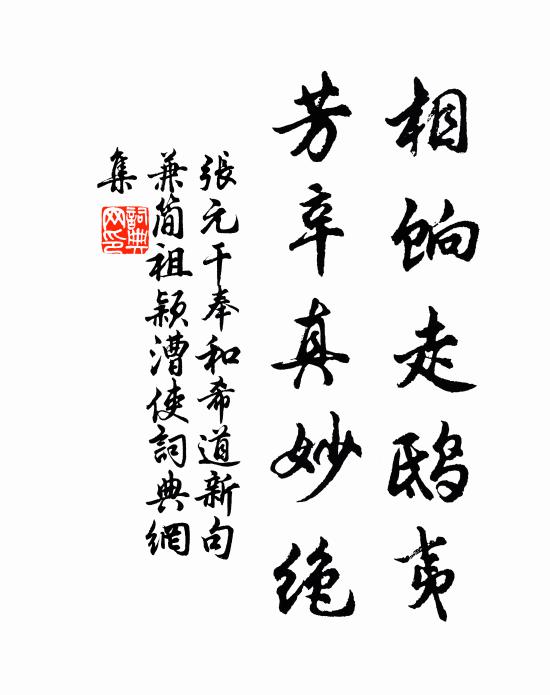 相餉走鴟夷
芳辛真妙絶
張元干奉和希道新句
兼簡祖穎漕使詞典網
集
詞典
网印